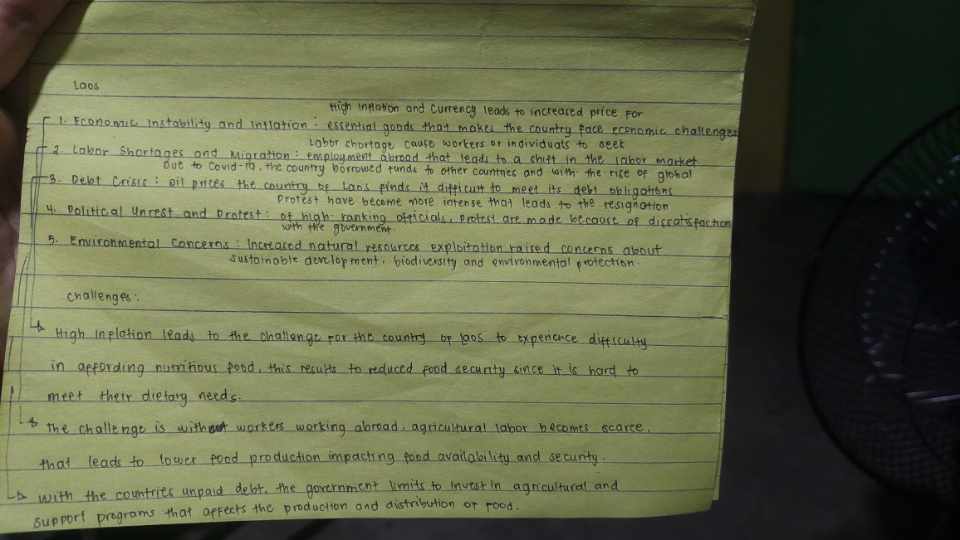 Laos
High Inflation and Currency leads to increased price for
1. Economic Instability and Inflation : essential goods that makes the country face economic challenges
Labor shortage cause workers or individuals to seek
2. Labor Shortages and Migration : employment abroad that leads to a shift in the labor market
Due to Covid-19, the country borrowed funds to other countries and with the rise of global
3. Debt Crisis : oil prices the country of Laos finds it difficult to meet its debt obligations
Protest have become more intense that leads to the resignation
4. Political Unrest and Protest : of high-ranking officials, Protest are made because of dissatisfaction
with the government.
5. Environmental Concerns : Increased natural resources exploitation raised concerns about
sustainable development, biodiversity and environmental protection.
Challenges :
High Inflation leads to the challenge for the country of laos to experience difficulty
in affording nutritious food, this results to reduced food security since it is hard to
meet their dietary needs.
The challenge is with workers working abroad, agricultural labor becomes scarce,
that leads to lower food production impacting food availability and security.
With the countries unpaid debt, the government limits to invest in agricultural and
support programs that affects the production and distribution of food.